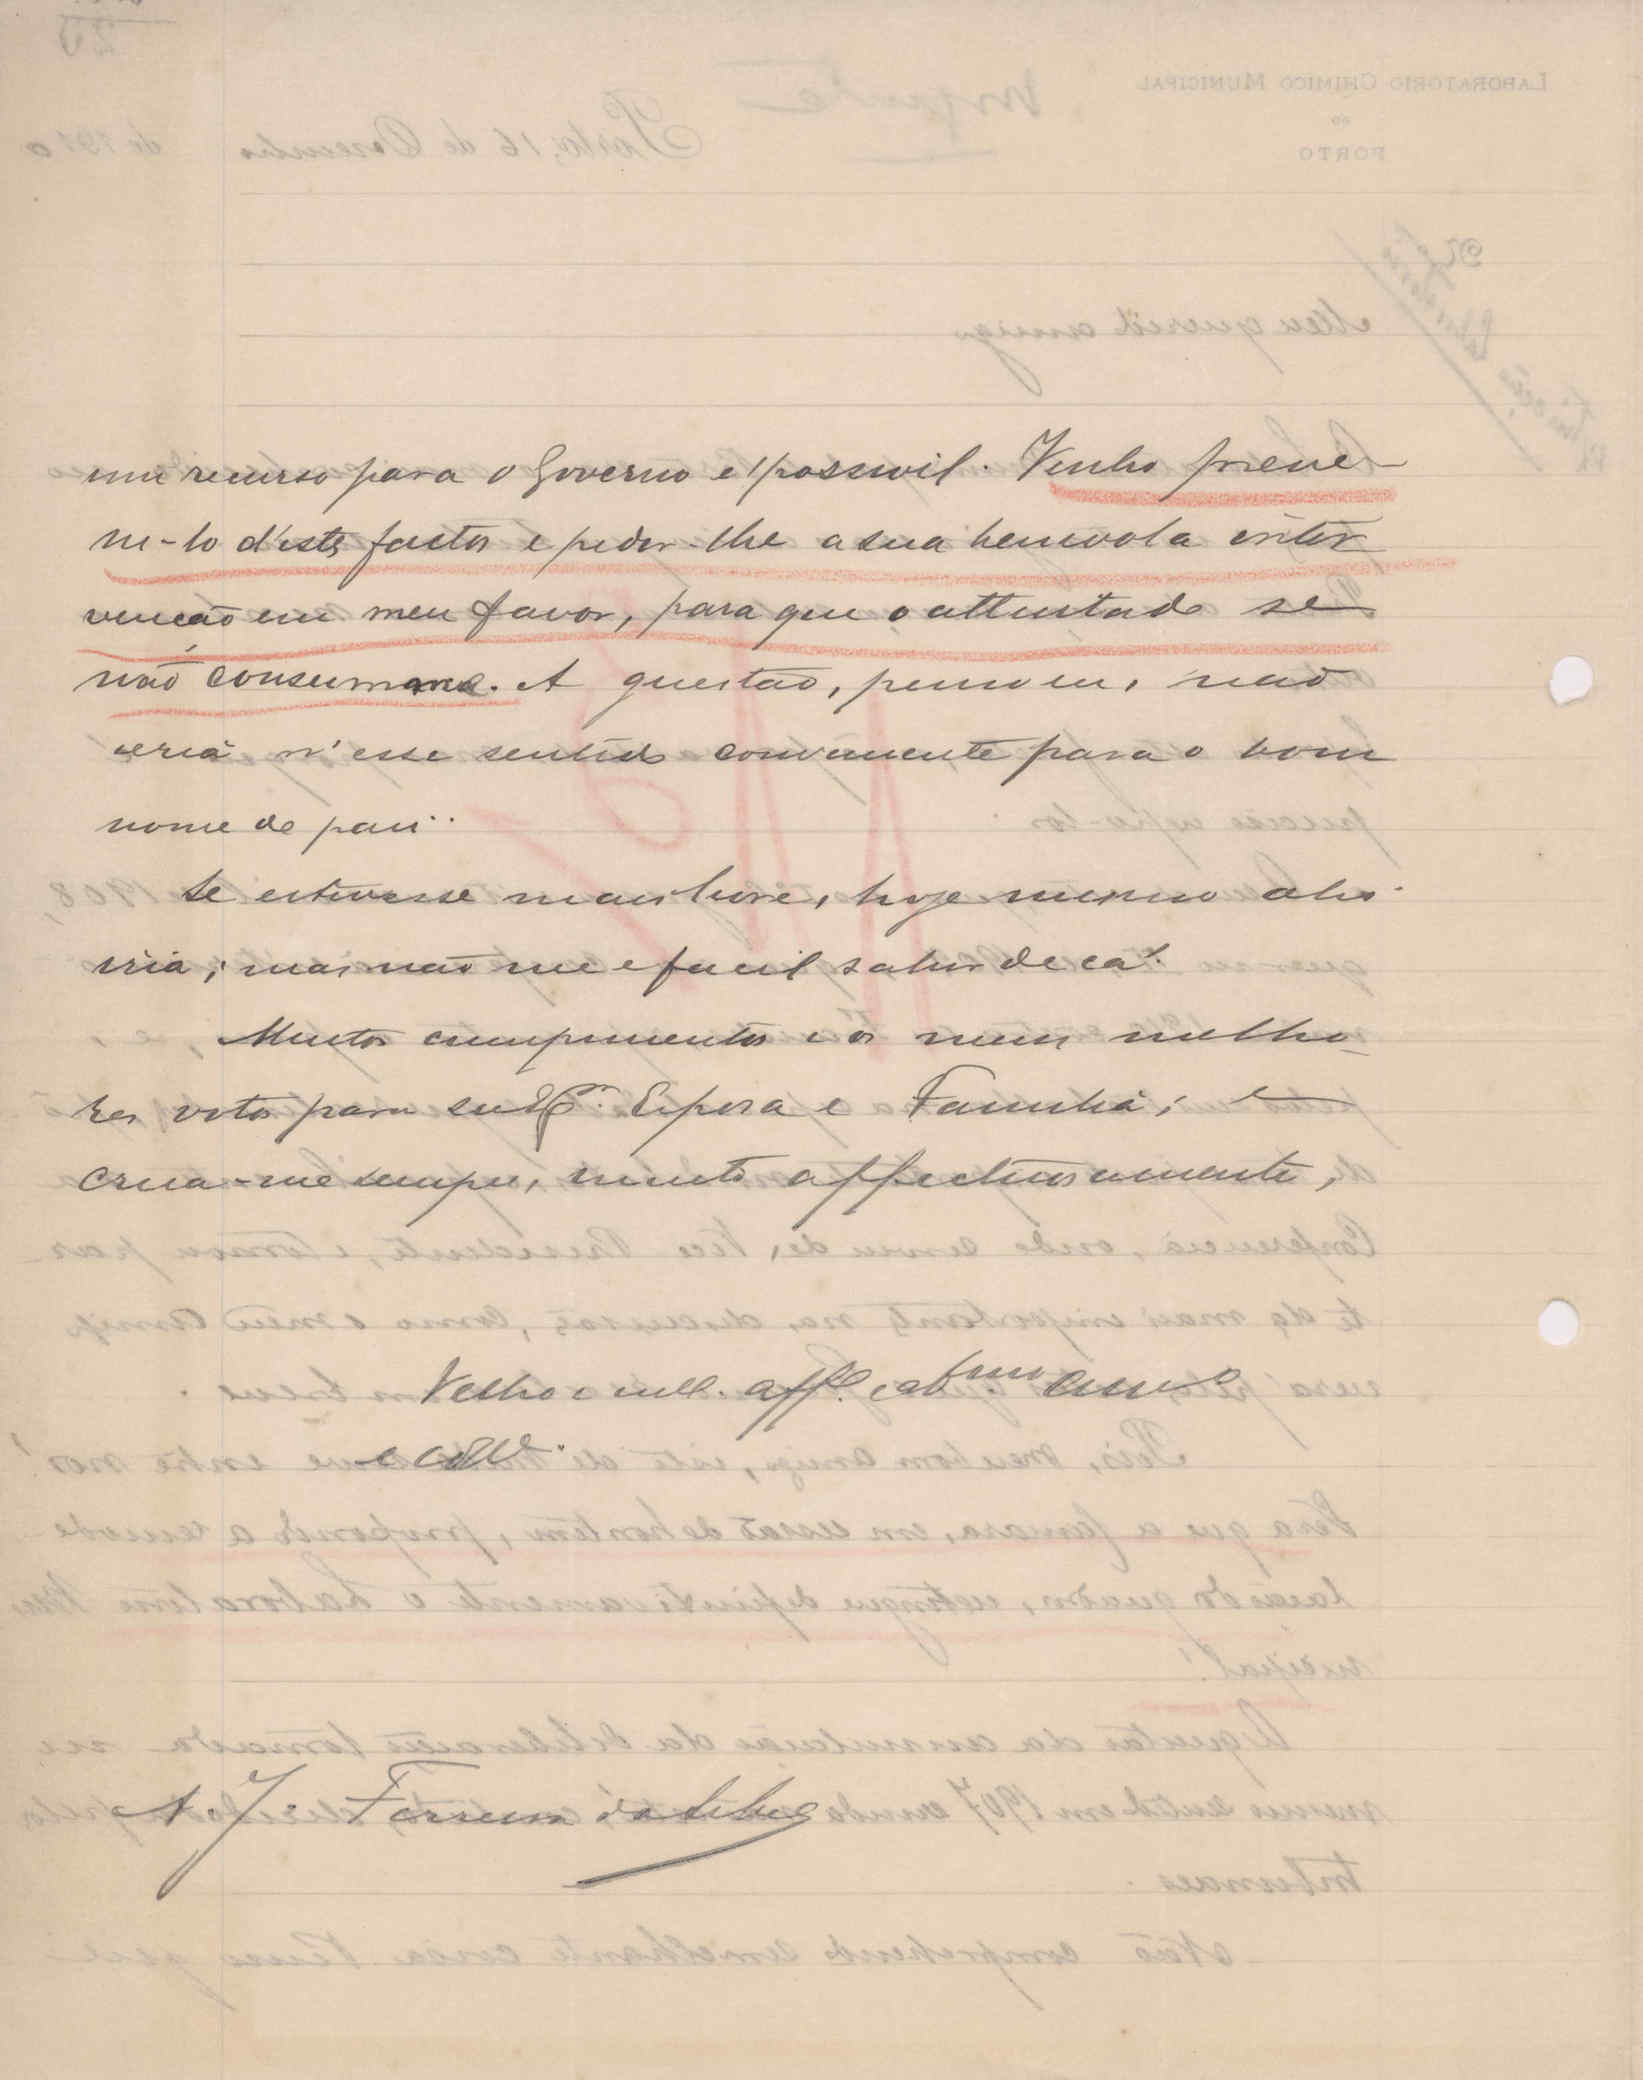 um recurso para o Governo é possivel. Venho preve-
ni-lo d'estes factos e pedir-lhe a sua benevola inter
venção em meu favor, para que o attentado se
não consumma. A questão, penso eu, não
seria n'esse sentido conveniente para o bom
nome do paiz.
Se estivesse mais livre, hoje mesmo ahi
iria; mas não me é facil sahir de cá.
Muitos cumprimentos e os meus melho-
res votos para su Ex.ma Esposa e Familia; e
creia-me sempre, muito affectuosamente,
Velho e aff.º e ob.mo am.º
e coll.
A. J. Ferreira da Silva